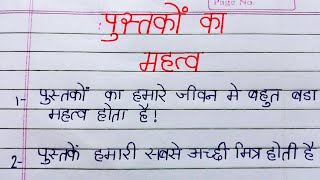 Page No.
पुस्तकों का
महत्व
1- पुस्तकों का हमारे जीवन मे बहुत बडा
महत्व होता है!
2- पुस्तकें हमारी सबसे अच्छी मित्र होती है